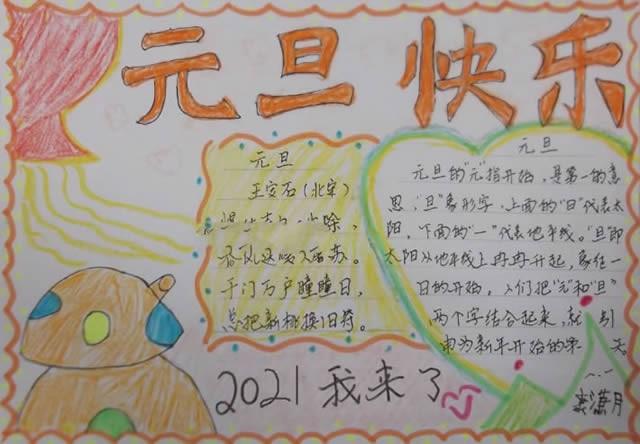 元旦快乐
元旦
王安石(北宋)
春风送暖入屠苏。
千门万户瞳瞳日,
总把新桃换旧符。
元旦
元旦的"元"指开始,是第一的意
思,"旦"象形字,上面的"日"代表太
阳,下面的"一"代表地平线。"旦"即
太阳从地平线上冉冉升起,象征一
日的开始,人们把"元"和"旦"
两个字结合起来,就
申为新年开始的第 天
2021我来了